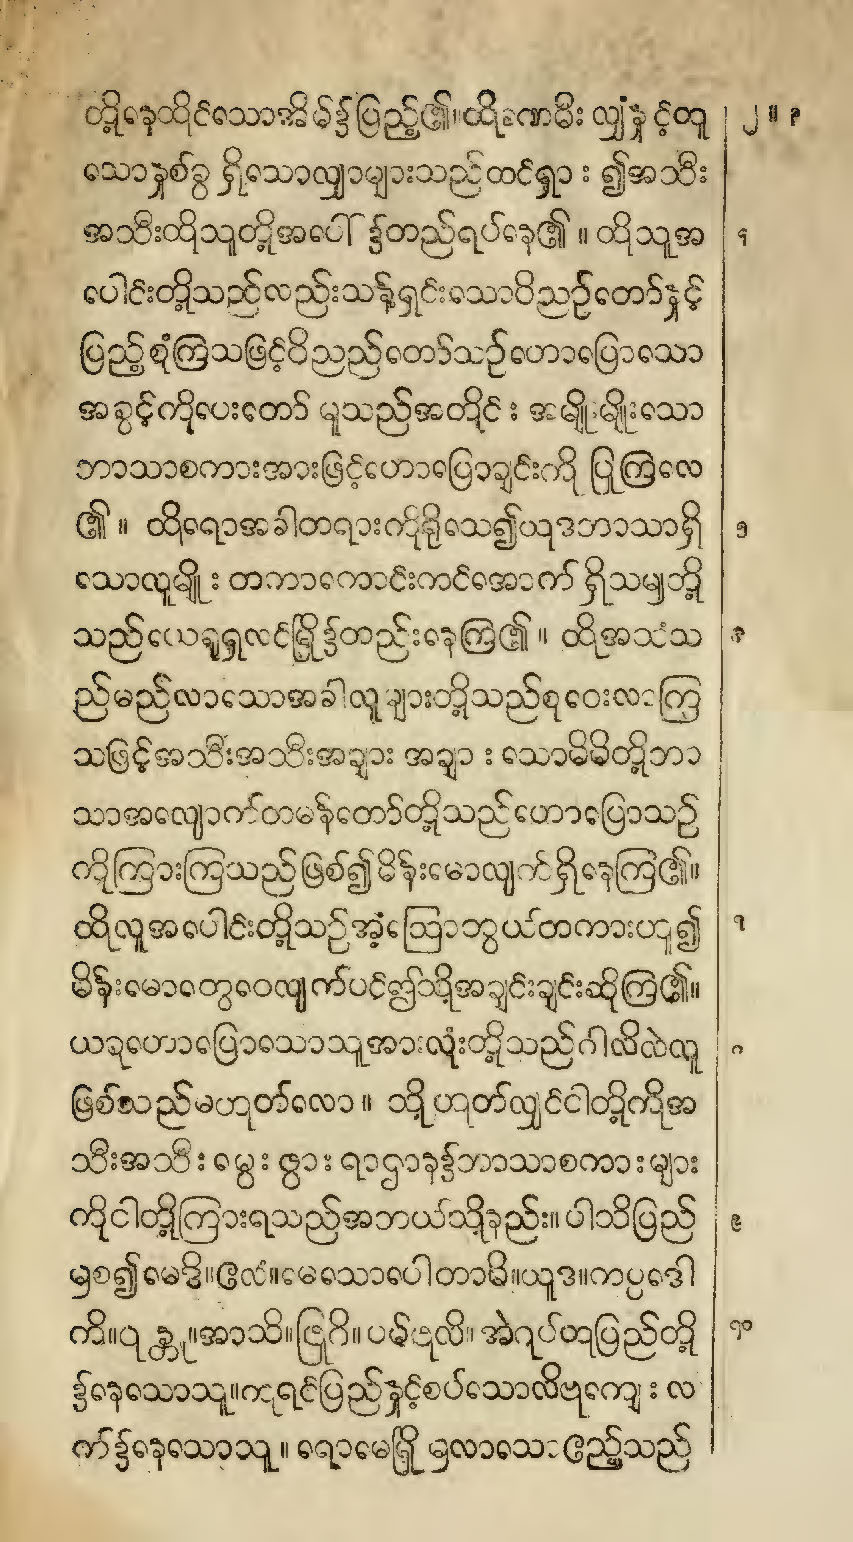 တို့နေထိုင်သောအိမ်၌ပြည့်၏။ထိုခဏမီးလျှံနှင့်တူ ၂ ။ ၃
သောနှစ်ခွ ရှိသောလျှာများသည်ထင်ရှား ၍အသီး
အသီးထိုသူတို့အပေါ်၌တည်ရပ်နေ၏ ။ ထိုသူအ ၄
ပေါင်းတို့သည်လည်းသန့်ရှင်းသောဝိညဉ်တော်နှင့်
ပြည့်စုံကြသဖြင့်ဝိညည်တော်သဉ်ဟောပြောသော
အခွင့်ကိုပေးတော် မူသည်အတိုင်း အမျိုးမျိုးသော
ဘာသာစကားအားဖြင့်ဟောပြောချင်းကို ပြုကြလေ
၏ ။ ထိုရောအခါတရားကိုရိုသေ၍ယုဒဘာသာရှိ ၅
သောလူမျိုး တကာကောင်းကင်အောက် ရှိသမျှတို့
သည်ယေရုရှလင်မြို့၌တည်းနေကြ၏ ။ ထိုအသံသ ၆
ည်မည်လာသောအခါလူများတို့သည်စုဝေးလာကြ
သဖြင့်အသီးအသီးအချား အချား သောမိမိတို့ဘာ
သာအလျောက်တမန်တော်တို့သည်ဟောပြောသဉ်
ကိုကြားကြသည်ဖြစ်၍မိန်းမောလျက်ရှိနေကြ၏။
ထိုလူအပေါင်းတို့သဉ်အံ့ဩောဘွယ်တကားဟူ၍ ၇
မိန်းမောတွေဝေလျက်ပင်ဤသို့အချင်းချင်းဆိုကြ၏။
ယခုဟောပြောသောသူအားလုံးတို့သည်ဂါလိလဲလူ ၈
ဖြစ်သည်မဟုတ်လော ။ သို့ဟုတ်လျှင်ငါတို့ကိုအ
သီးအသီး မွေး ဖွား ရာဌာန၌ဘာသာစကားများ
ကိုငါတို့ကြားရသည်အဘယ်သို့နည်း။ ပါသိပြည် ၉
မှစ၍မေဒိ။ဧလံ။မေသောပေါတာမိ။ယူဒ။ကပ္ပဒေါ
ကိ။ပုန္တု။အာသိ။ဖြုဂိ။ပမ်ဖုလိ။ အဲဂုပ်တုပြည်တို့ ၁၀
၌နေသောသူ။ကုရင်ပြည်နှင့်စပ်သောလိဗုကျေး လ
က်၌နေသောသူ ။ ရောမေမြို့ မှလာသောဧည့်သည်